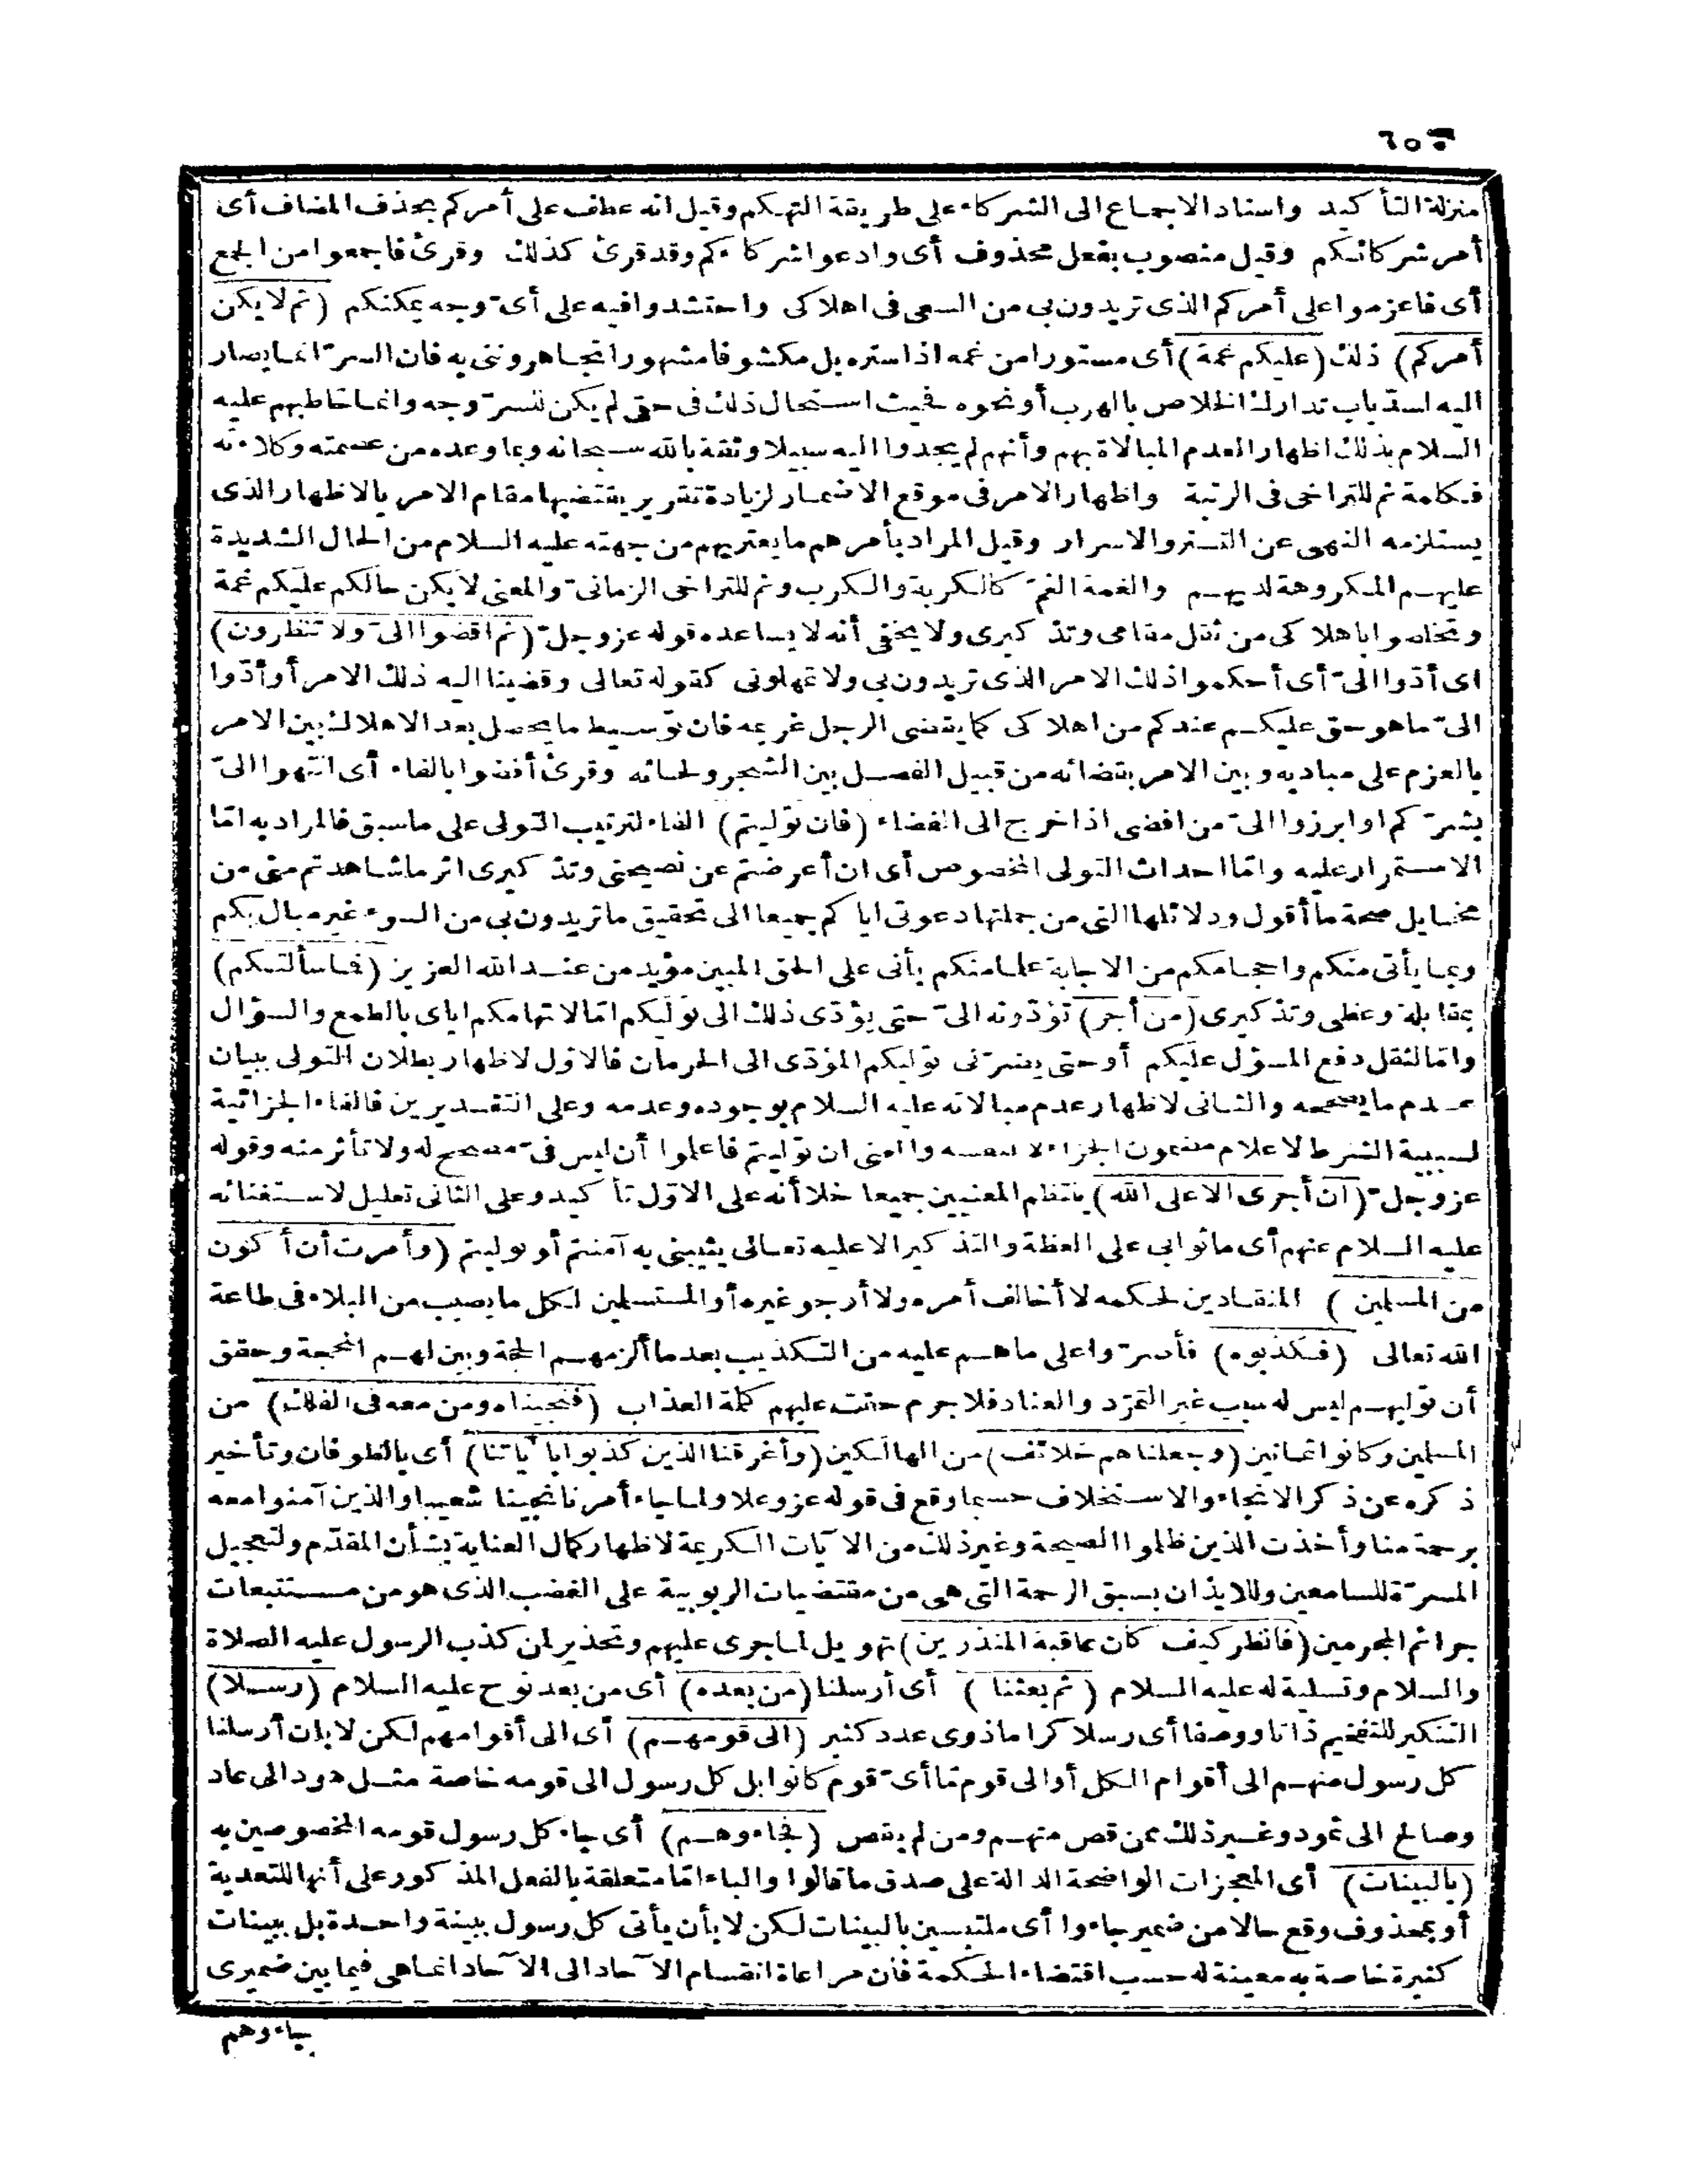 ٦٥٢
منزلة التأكيد واسناد الاجماع الى الشركاء على طريقة التهكم وقيل انه عطف على أمركم بحذف المضاف أى
أمر شركائكم وقيل منصوب بفعل محذوف أى وادعوا شركاءكم وقد قرئ كذلك وقرئ فاجمعوا من الجمع
أى فاعزموا على أمركم الذى تريدون بى من السعى فى اهلاكى واحتشدوا فيه على أىّ وجه يمكنكم (ثم لا يكن
أمركم) ذلك (عليكم غمة) أى مستورا من غمه اذا ستره بل مكشوفا مشهورا تجاهروننى به فان السرّ انما يصار
اليه لسدّ باب تدارك الخلاص بالهرب أو نحوه فحيث استحال ذلك فى حقى لم يكن للسرّ وجه وانما خاطبهم عليه
السلام بذلك اظهارا لعدم المبالاة بهم وأنهم لم يجدوا اليه سبيلا وثقة بالله سبحانه وبما وعده من عصمته وكلاءته
فكلمة ثم للتراخى فى الرتبة واظهار الامر فى موقع الاضمار لزيادة تقرير يقتضيها مقام الامر بالاظهار الذى
يستلزمه النهى عن التستر والاسرار وقيل المراد بأمرهم ما يعتريهم من جهته عليه السلام من الحال الشديدة
عليهم المكروهة لديهم والغمة الغمّ كالكربة والكرب وثم للتراخى الزمانىّ والمعنى لا يكن حالكم عليكم غمة
وتخلصوا باهلاكى من ثقل مقامى وتذكيرى ولا يخفى أنه لا يساعده قوله عز وجلّ (ثم اقضوا الىّ ولا تنظرون)
اى أدّوا الىّ أى أحكموا ذلك الامر الذى تريدون بى ولا تمهلونى كقوله تعالى وقضينا اليه ذلك الامر أو أدّوا
الىّ ما هو حق عليكم عندكم من اهلاكى كما يقضى الرجل غريمه فان توسيط ما يحصل بعد الاهلاك بين الامر
بالعزم على مباديه وبين الامر بقضائه من قبيل الفصل بين الشجر ولحائه وقرئ أفضوا بالفاء أى انتهوا الىّ
بشرّكم او ابرزوا الىّ من افضى اذا خرج الى الفضاء (فان توليتم) الفاء لترتيب التولى على ما سبق فالمراد به امّا
الاستمرار عليه وامّا احداث التولى المخصوص أى ان أعرضتم عن نصيحتى وتذكيرى اثر ما شاهدتم منى من
مخايل صحة ما أقول ودلائلها التى من جملتها دعوتى اياكم جميعا الى تحقيق ما تريدون بى من السوء غير مبال بكم
وبما يأتى منكم واحجامكم من الاجابة علما منكم بأنى على الحق المبين مؤيد من عند الله العزيز (فما سألتكم)
بمقابلة وعظى وتذكيرى (من أجر) تؤدّونه الىّ حتى يؤدّى ذلك الى توليكم امّا لاتهامكم اياى بالطمع والسؤال
وامّا لثقل دفع المسؤل عليكم أو حتى يضرّنى توليكم المؤدّى الى الحرمان فالاوّل لاظهار بطلان التولى ببيان
عدم ما يصححه والثانى لاظهار عدم مبالاته عليه السلام بوجوده وعدمه وعلى التقديرين فالفاء الجزائية
لسببية الشرط لاعلام مضمون الجزاء لا لنفسه والمعنى ان توليتم فاعلموا أن ليس فىّ مصحح له ولا تأثر منه وقوله
عز وجلّ (ان أجرى الا على الله) ينتظم المعنيين جميعا خلا أنه على الاوّل تأكيد وعلى الثانى تعليل لاستغنائه
عليه السلام عنهم أى ما ثوابى على العظة والتذكير الا عليه تعالى يثيبنى به آمنتم أو توليتم (وأمرت أن أكون
من المسلمين) المنقادين لحكمه لا أخالف أمره ولا أرجو غيره أو المستسلمين لكل ما يصيب من البلاء فى طاعة
الله تعالى (فكذبوه) فأصرّوا على ما هم عليه من التكذيب بعد ما ألزمهم الحجة وبين لهم المحجة وحقق
أن توليهم ليس له سبب غير التمرّد والعناد فلا جرم حقت عليهم كلمة العذاب (فنجيناه ومن معه فى الفلك) من
المسلمين وكانوا ثمانين (وجعلناهم خلائف) من الهالكين (وأغرقنا الذين كذبوا بآياتنا) أى بالطوفان وتأخير
ذكره عن ذكر الانجاء والاستخلاف حسبما وقع فى قوله عز وعلا ولما جاء أمرنا نجينا شعيبا والذين آمنوا معه
برحمة منا وأخذت الذين ظلموا الصيحة وغير ذلك من الآيات الكريمة لاظهار كمال العناية بشأن المقدّم ولتعجيل
المسرّة للسامعين وللايذان بسبق الرحمة التى هى من مقتضيات الربوبية على الغضب الذى هو من مستتبعات
جرائم المجرمين (فانظر كيف كان عاقبة المنذرين) تهويل لما جرى عليهم وتحذير لمن كذب الرسول عليه الصلاة
والسلام وتسلية له عليه السلام (ثم بعثنا) أى أرسلنا (من بعده) أى من بعد نوح عليه السلام (رسلا)
التنكير للتفخيم ذاتا ووصفا أى رسلا كراما ذوى عدد كثير (الى قومهم) أى الى أقوامهم لكن لا بان أرسلنا
كل رسول منهم الى أقوام الكل أو الى قوم مّا أىّ قوم كانوا بل كل رسول الى قومه خاصة مثل هود الى عاد
وصالح الى ثمود وغير ذلك ممن قص منهم ومن لم يقص (فجاءوهم) أى جاء كل رسول قومه المخصوصين به
(بالبينات) أى المعجزات الواضحة الدالة على صدق ما قالوا والباء امّا متعلقة بالفعل المذكور على أنها للتعدية
أو بمحذوف وقع حالا من ضمير جاءوا أى ملتبسين بالبينات لكن لا بأن يأتى كل رسول ببينة واحدة بل ببينات
كثيرة خاصة به معينة له حسب اقتضاء الحكمة فان مراعاة انقسام الآحاد الى الآحاد انما هى فيما بين ضميرى
جاءوهم